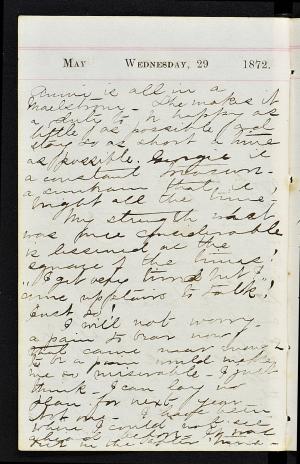 May Wednesday, 29 1872.
is all in a
Maelstrom - She makes it
a duty to be happy as
little as possible and
stay so as short a time
as possible. Georgie is
a constant
a sunbeam that is
bright all the time.
My strength what
was once considerable
is lessened at the
square of the times!
"I get very tired but I
come upstairs to talk"!
Just so!
I will not worry.
a pain to bear now
cause
to be a pain would make
me so miserable I just
think - I can lay no
plan for next year
for me - I have been
where I could not see
in the